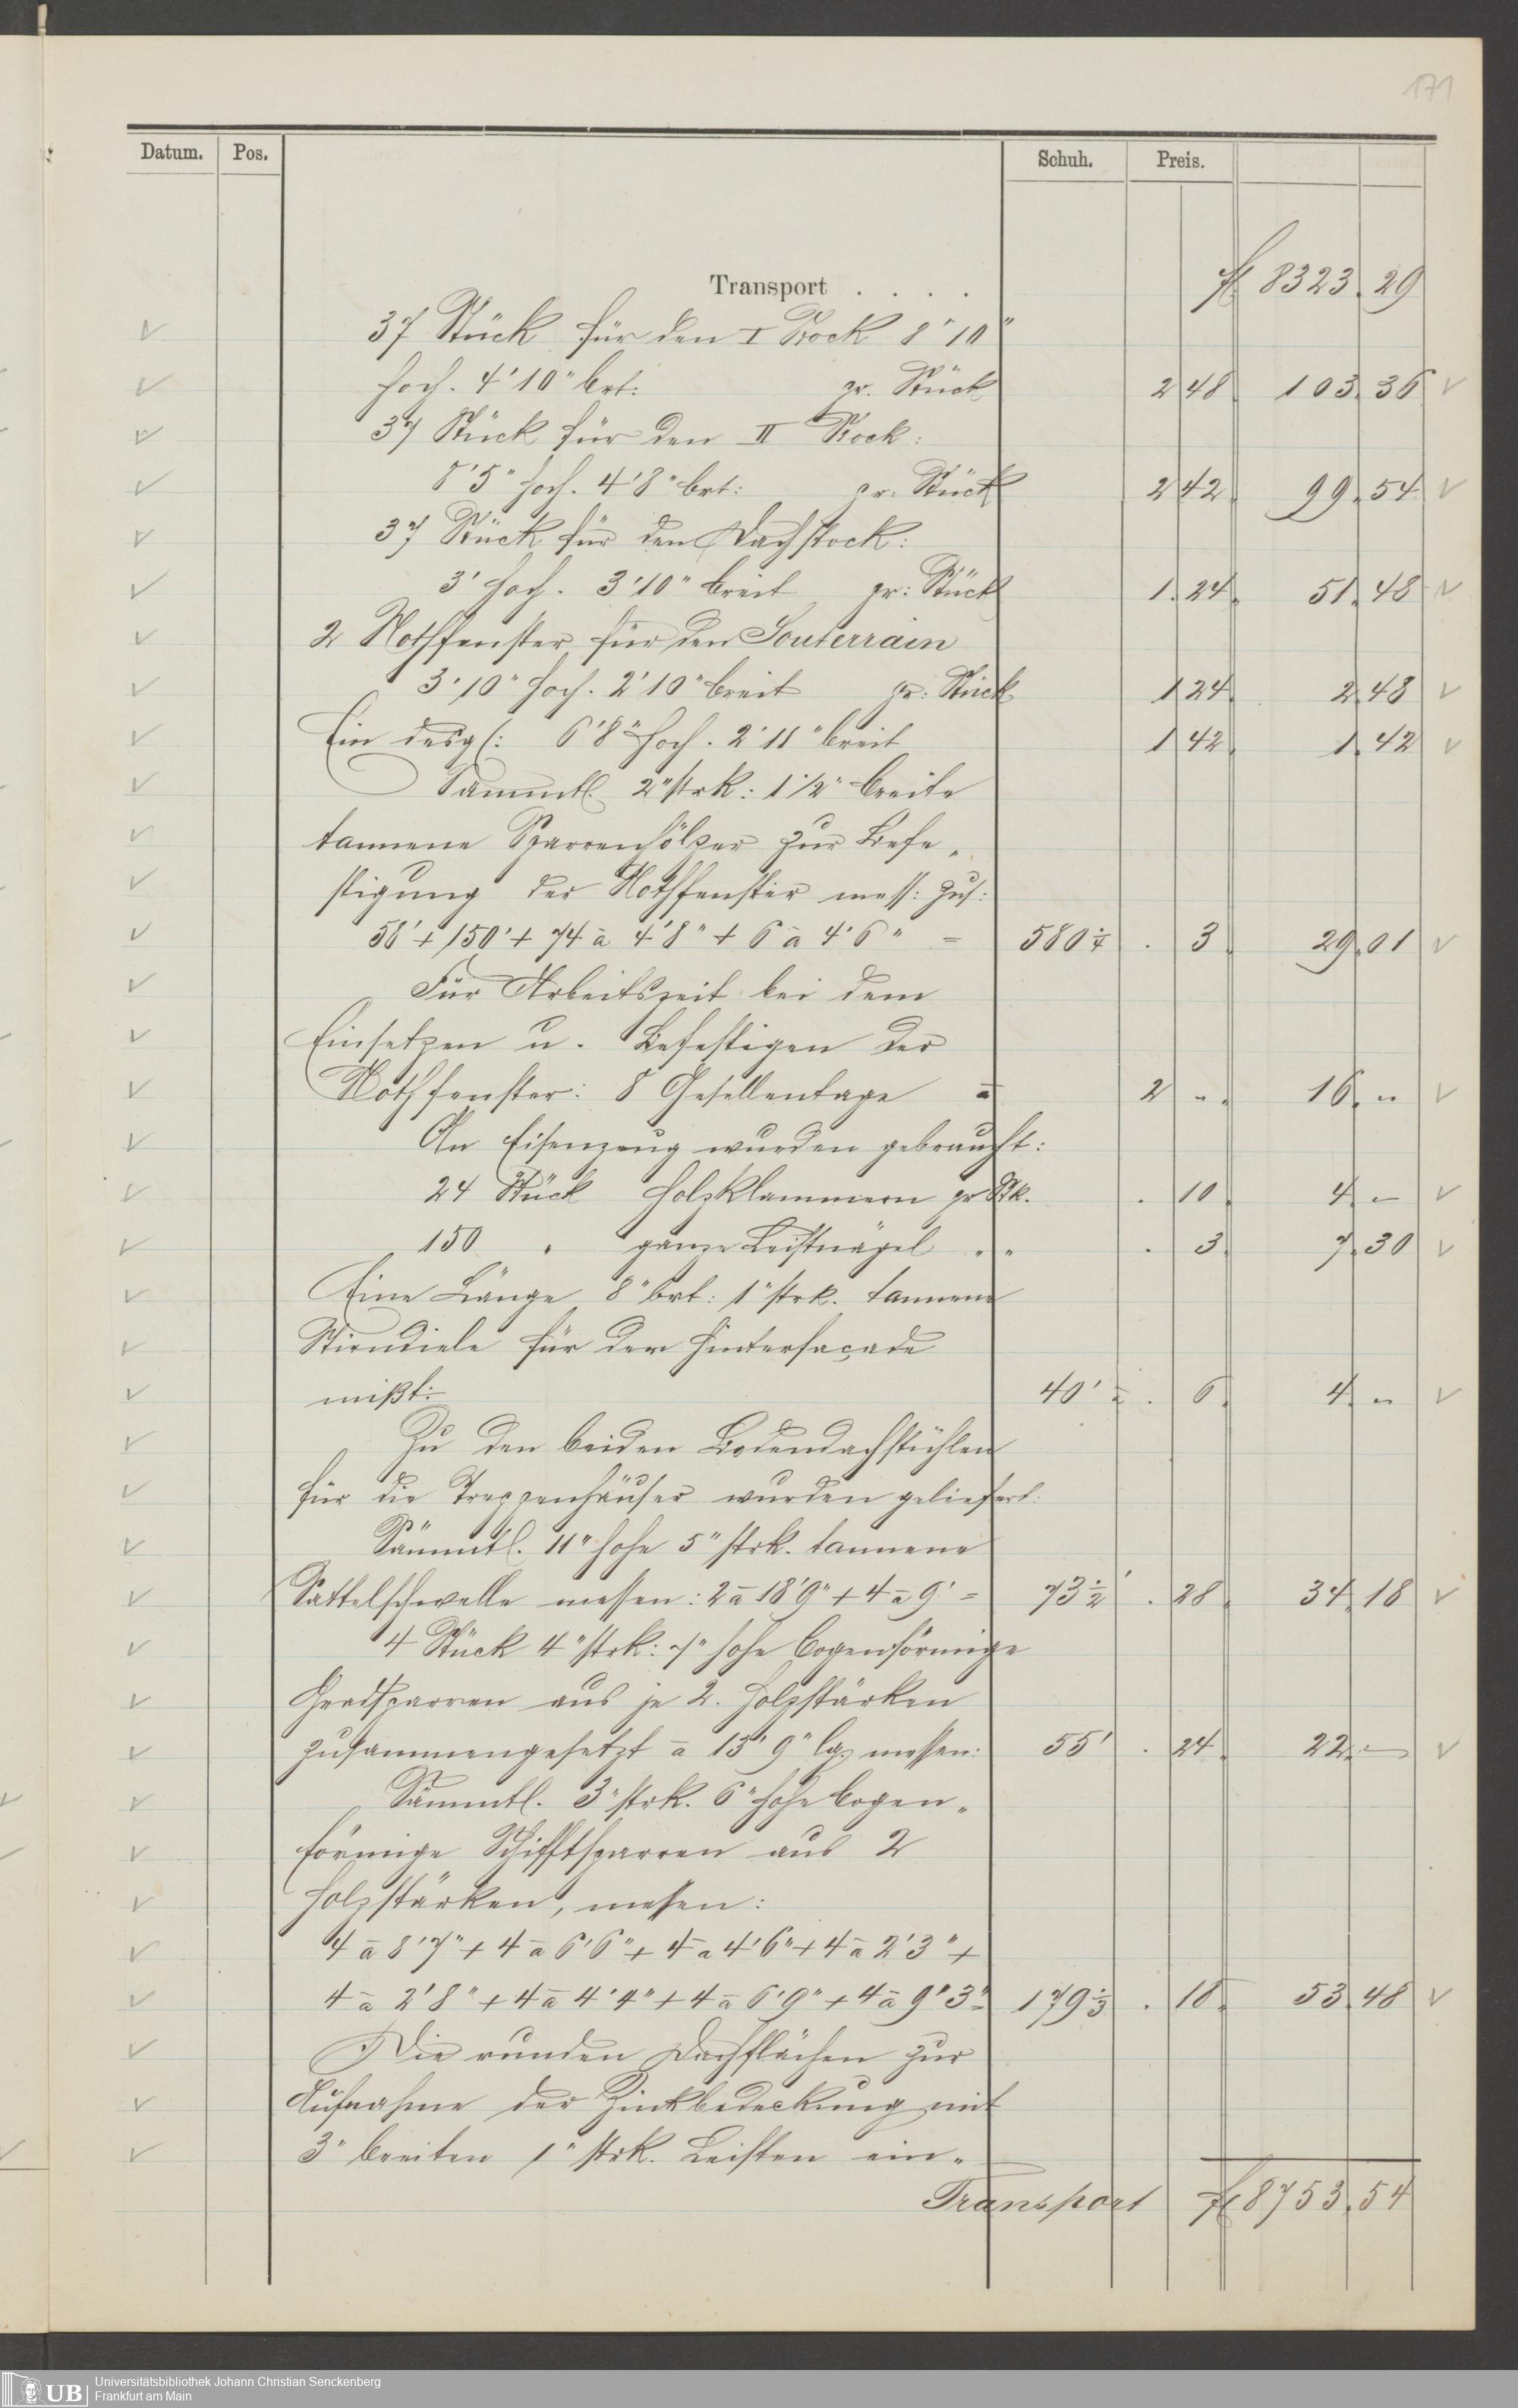 171
Datum. Pos. Schuh. Preis.
Transport . . . . fl 8323. 29
37 Stück für den I Stock 8'10"
hoch. 4'10" brt: pr. Stück 2 48. 103. 36
37 Stück für den II Stock:
8'5" hoch. 4'8" brt: pr: Stück 2 42. 99. 54
37 Stück für den Dachstock:
3' hoch. 3'10" breit pr: Stück 1. 24. 51. 48
2 Nothfenster für den Souterrain
3'10" hoch. 2'10" breit pr: Stück 1 24. 2. 48
Ein desgl: 6'8" hoch. 2'11" breit 1 42. 1. 42
Sämmtl. 2" strk: 1 1/2" breite
tannene Sparrenhölzer zur Befe„
stigung der Nothfenster mess: zus:
58' + 150' + 74 à 4'8" + 6 à 4'6" = 580 1/4 . 3. 29. 01
Für Arbeitszeit bei dem
Einsetzen u. Befestigen der
Nothfenster: 8 Gesellentage à 2 „. 16. „
An Eisenzeug wurden gebraucht:
24 Stück Holzklammern pr Stk. . 10. 4. –
150 „ ganze Leistnägel „ „ . 3. 7. 30
Eine Länge 8" brt: 1" strk. tannene
Stirndiele für der Hinterfaçade
mißt: 40' à . 6. 4. „
Zu den beiden Bodendachstühlen
für die Treppenhäuser wurden geliefert:
Sämmtl. 11" hohe 5" strk. tannene
Sattelschwelle messen: 2 à 18'9" + 4 à 9' = 73 1/2' . 28. 34. 18
4 Stück 4" strk: 7" hohe bogenförmige
Gradsparren aus je 2. Holzstärken
zusammengesetzt à 13'9" lg. messen: 55' . 24. 22. –
Sämmtl. 3" strk. 6" hohe bogen„
förmige Schifftsparren aus 2
Holzstärken, messen:
4 à 8'7" + 4 à 6'6" + 4 à 4'6" + 4 à 2'3" +
4 à 2'8" + 4 à 4'4" + 4 à 6'9" + 4 à 9'3" = 179 1/3 . 18. 53. 48
Die runden Dachflächen zur
Aufnahme der Zinkbedeckung mit
3" breiten 1" strk. Leisten ein„
Transport fl 8753. 54
UB Universitätsbibliothek Johann Christian Senckenberg
Frankfurt am Main